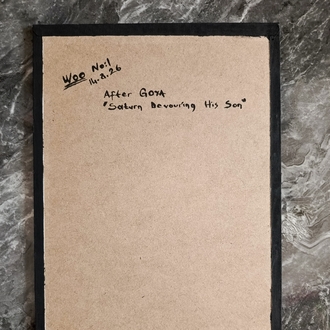 Woo No:1
14.8.26
After GOYA
"Saturn Devouring His Son"